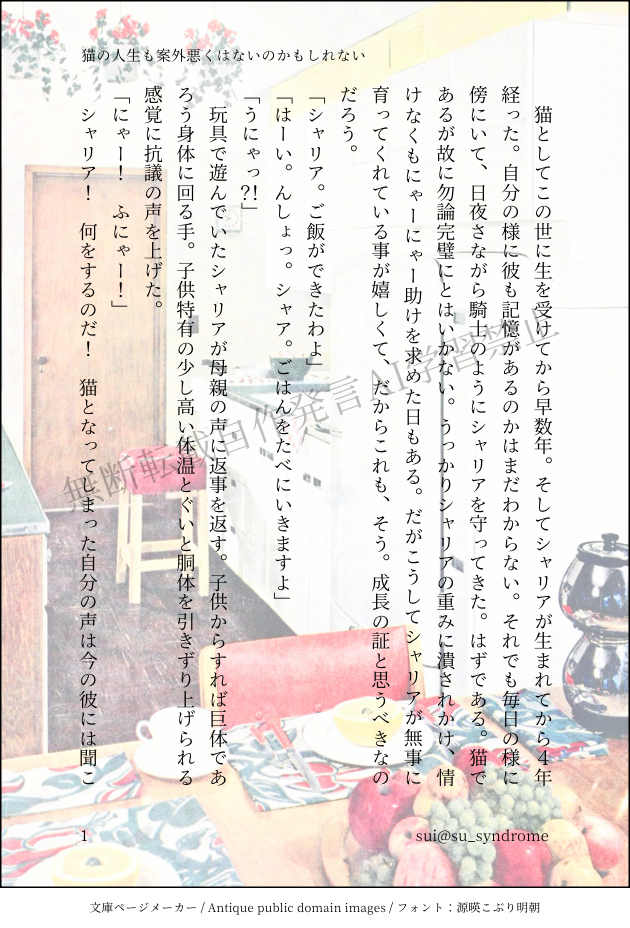 猫の人生も案外悪くはないのかもしれない
　猫としてこの世に生を受けてから早数年。そしてシャリアが生まれてから４年
経った。自分の様に彼も記憶があるのかはまだわからない。それでも毎日の様に
傍にいて、日夜さながら騎士のようにシャリアを守ってきた。はずである。猫で
あるが故に勿論完璧にとはいかない。うっかりシャリアの重みに潰されかけ、情
けなくもにゃーにゃー助けを求めた日もある。だがこうしてシャリアが無事に
育ってくれている事が嬉しくて、だからこれも、そう。成長の証と思うべきなの
だろう。
「シャリア。ご飯ができたわよ」
「はーい。んしょっ。シャア。ごはんをたべにいきますよ」
「うにゃっ?!」
　玩具で遊んでいたシャリアが母親の声に返事を返す。子供からすれば巨体であ
ろう身体に回る手。子供特有の少し高い体温とぐいと胴体を引きずり上げられる
感覚に抗議の声を上げた。
「にゃー！　ふにゃー！」
　シャリア！　何をするのだ！　猫となってしまった自分の声は今の彼には聞こ
無断転載自作発言AI学習禁止
1
sui@su_syndrome
文庫ページメーカー / Antique public domain images / フォント：源暎こぶり明朝